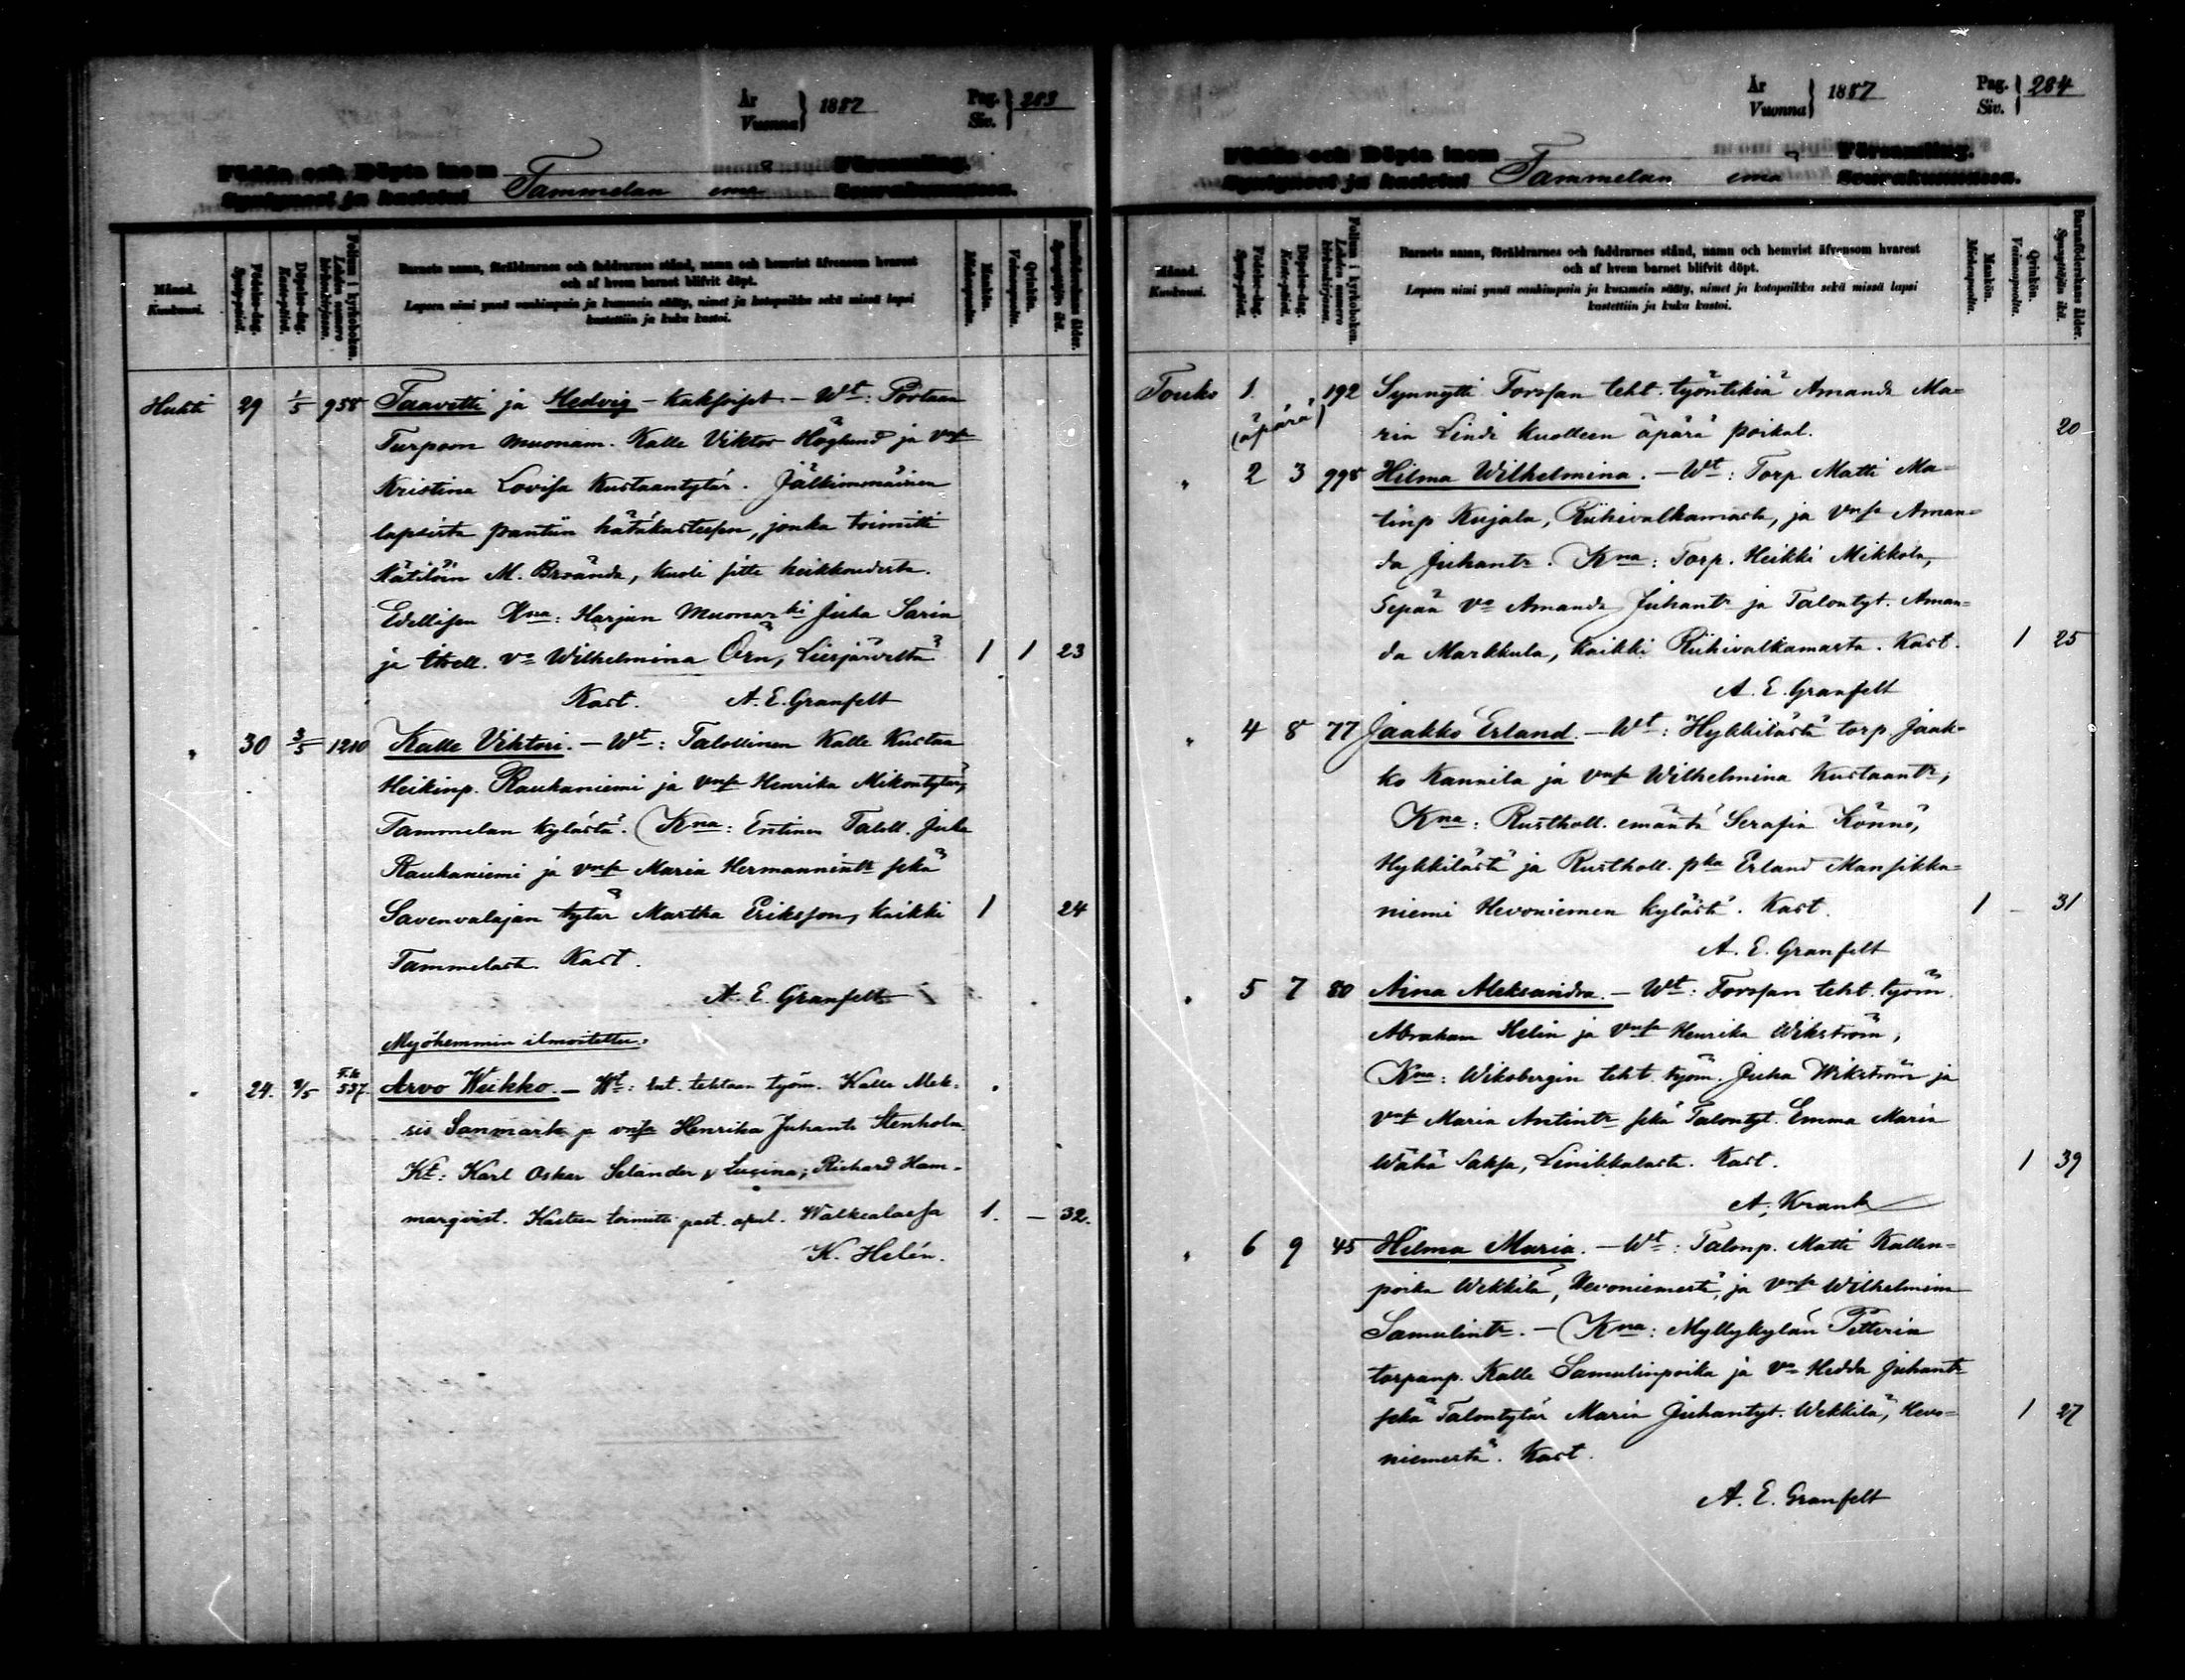 År
Vuonna } 1887
Pag.
Siv. } 283
Födda och Döpta inom
Syntyneet ja kastetut Tammelan ema
Församling.
Seurakunnassa.
Månad.
Kuukausi.
Födelse-dag.
Synty-päivä.
Döpelse-dag.
Kaste-päivä.
Folium i kyrkoboken.
Lehden numero kirkonkirjassa.
Barnets namn, föräldrarnes och faddrarnes stånd, namn och hemvist äfvensom hvarest
och af hvem barnet blifvit döpt.
Lapsen nimi ynnä vanhimpain ja kummein sääty, nimet ja kotopaikka sekä missä lapsi
kastettiin ja kuka kastoi.
Mankön.
Miehenpuolta.
Qvinkön.
Vaimonpuolta.
Barnföderskans ålder.
Synnyttäjän ikä.
Huhti 29 1/5 958 Taavetti ja Hedvig - kaksoiset. - Wt: Portaan
Turpoon muonam. Kalle Viktor Höglund ja vmsa
Kristina Lovisa Kustaantytär. Jälkimmäinen
lapsista pantiin hätäkasteesen, jonka toimitti
Kätilöin M. Brände, kuoli sitte heikkoudesta.
Edellisen Kna: Harjun Muonar ki Juha Sarin
ja itsell. va Wilhelmina Örn, Liesjärveltä 1 1 23
Kast. A. E. Granfelt
" 30 3/5 1210 Kalle Viktori. - Wt: Talollinen Kalle Kustaa
Heikinp. Raukaniemi ja vmsa Henrika Mikontytär,
Tammelan kylästä. Kna: Entinen Taloll. Juha
Raukaniemi ja vmsa Maria Hermannintr sekä
Savenvalajan tytär Martha Eriksson, kaikki 1 24
Tammelasta Kast.
A. E. Granfelt
Myöhemmin ilmoitettu.
" 24. 9/5 F.k. 537. Arvo Weikko. - Wt: ent. tehtaan työm. Kalle Alek-
sis Sanmark ja vmsa Henrika Juhantr Stenholm.
Kt: Karl Oskar Selander & Lusina; Richard Ham-
marqvist. Kasteen toimitti past. apul. Walkealassa 1. - 32.
K. Helén.
År
Vuonna } 1887
Pag.
Siv. } 284
Födda och Döpta inom
Syntyneet ja kastetut Tammelan ema
Församling.
Seurakunnassa.
Månad.
Kuukausi.
Födelse-dag.
Synty-päivä.
Döpelse-dag.
Kaste-päivä.
Folium i kyrkoboken.
Lehden numero kirkonkirjassa.
Barnets namn, föräldrarnes och faddrarnes stånd, namn och hemvist äfvensom hvarest
och af hvem barnet blifvit döpt.
Lapsen nimi ynnä vanhimpain ja kummein sääty, nimet ja kotopaikka sekä missä lapsi
kastettiin ja kuka kastoi.
Mankön.
Miehenpuolta.
Qvinkön.
Vaimonpuolta.
Barnföderskans ålder.
Synnyttäjän ikä.
Touko 1. 192 Synnytti Forssan teht. työntekiä Amanda Ma-
(äpärä) ria Lindi kuolleen äpärä poikal. 20
" 2 3 998 Hilma Wilhelmina. - Wt: Torp. Matti Ma-
tinp Kujala, Riihivalkamasta, ja vmsa Aman-
da Juhantr. Kna: Torp. Heikki Mikkola,
Sepän va Amanda Juhantr ja Talontyt. Aman-
da Markkula, kaikki Riihivalkamasta. Kast. 1 25
A. E. Granfelt
" 4 8 77 Jaakko Erland. - Wt: Hykkilästä torp. Jaak-
ko Kannila ja vmsa Wilhelmina Kustaantr;
Kna: Rustholl. emäntä Serafia Könnö,
Hykkilästä ja Rustholl. pka Erland Mansikka-
niemi Hevoniemen kylästä. Kast. 1 - 31
A. E. Granfelt
" 5 7 80 Aina Aleksandra. - Wt: Forssan teht. työm.
Abraham Helin ja vmsa Henrika Wikström,
Kna: Wiksbergin teht. työm. Juha Wikström ja
vmsa Maria Antintr sekä Talontyt. Emma Maria
Wähä Saksa, Linikkalasta. Kast. 1 39
A. Krank
" 6 9 45 Hilma Maria. - Wt: Talonp. Matti Kallen-
poika Wekkilä, Hevoniemestä, ja vmsa Wilhelmina
Samulintr. - Kna: Myllykylän Petterin
torpanp. Kalle Samulinpoika ja va Hedda Juhantr
sekä Talontytär Maria Juhantyt. Wekkilä, Hevo- 1 27
niemestä. Kast.
A. E. Granfelt